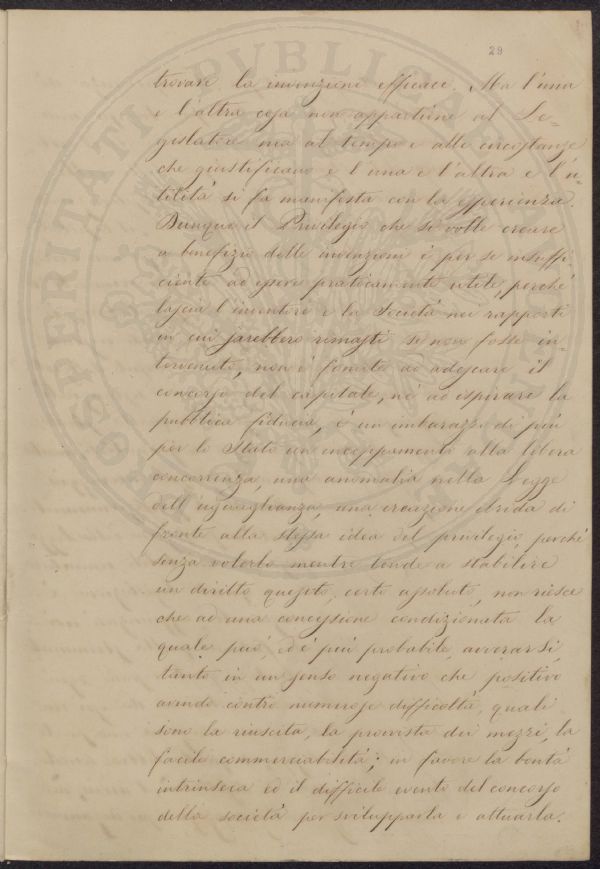 29
trovare la invenzione efficace. Ma l'una
e l'altra cosa non appartiene al Le=
gislatore ma al tempo e alle circostanze
che giustificano e l'una e l'altra e l'u=
tilità si fa manifesta con la esperienza.
Dunque il Privilegio che si volle creare
a benefizio delle invenzioni è per se insuffi
ciente ad essere praticamente utile, perché
lascia l'inventore e la Società nei rapporti
in cui sarebbero rimasti se non fosse in=
tervenuto, non è fomite ad adescare il
concorso del capitale, né ad ispirare la
pubblica fiducia, è un imbarazzo di più
per lo Stato un inceppamento alla libera
concorrenza, una anomalia nella Legge
dell'uguaglianza, una creazione ibrida di
fronte alla stessa idea del privilegio, perché
senza volerlo mentre tende a stabilire
un diritto quesito, certo assoluto, non riesce
che ad una concessione condizionata la
quale può, ed è più probabile, avverarsi,
tanto in un senso negativo che positivo
avendo contro numerose difficoltà, quali
sono la riuscita, la provvista dei mezzi, la
facile commerciabilità; in favore la bontà
intrinseca ed il difficile evento del concorso
della società per svilupparla e attuarla.
PROSPERITATI PUBLICAE